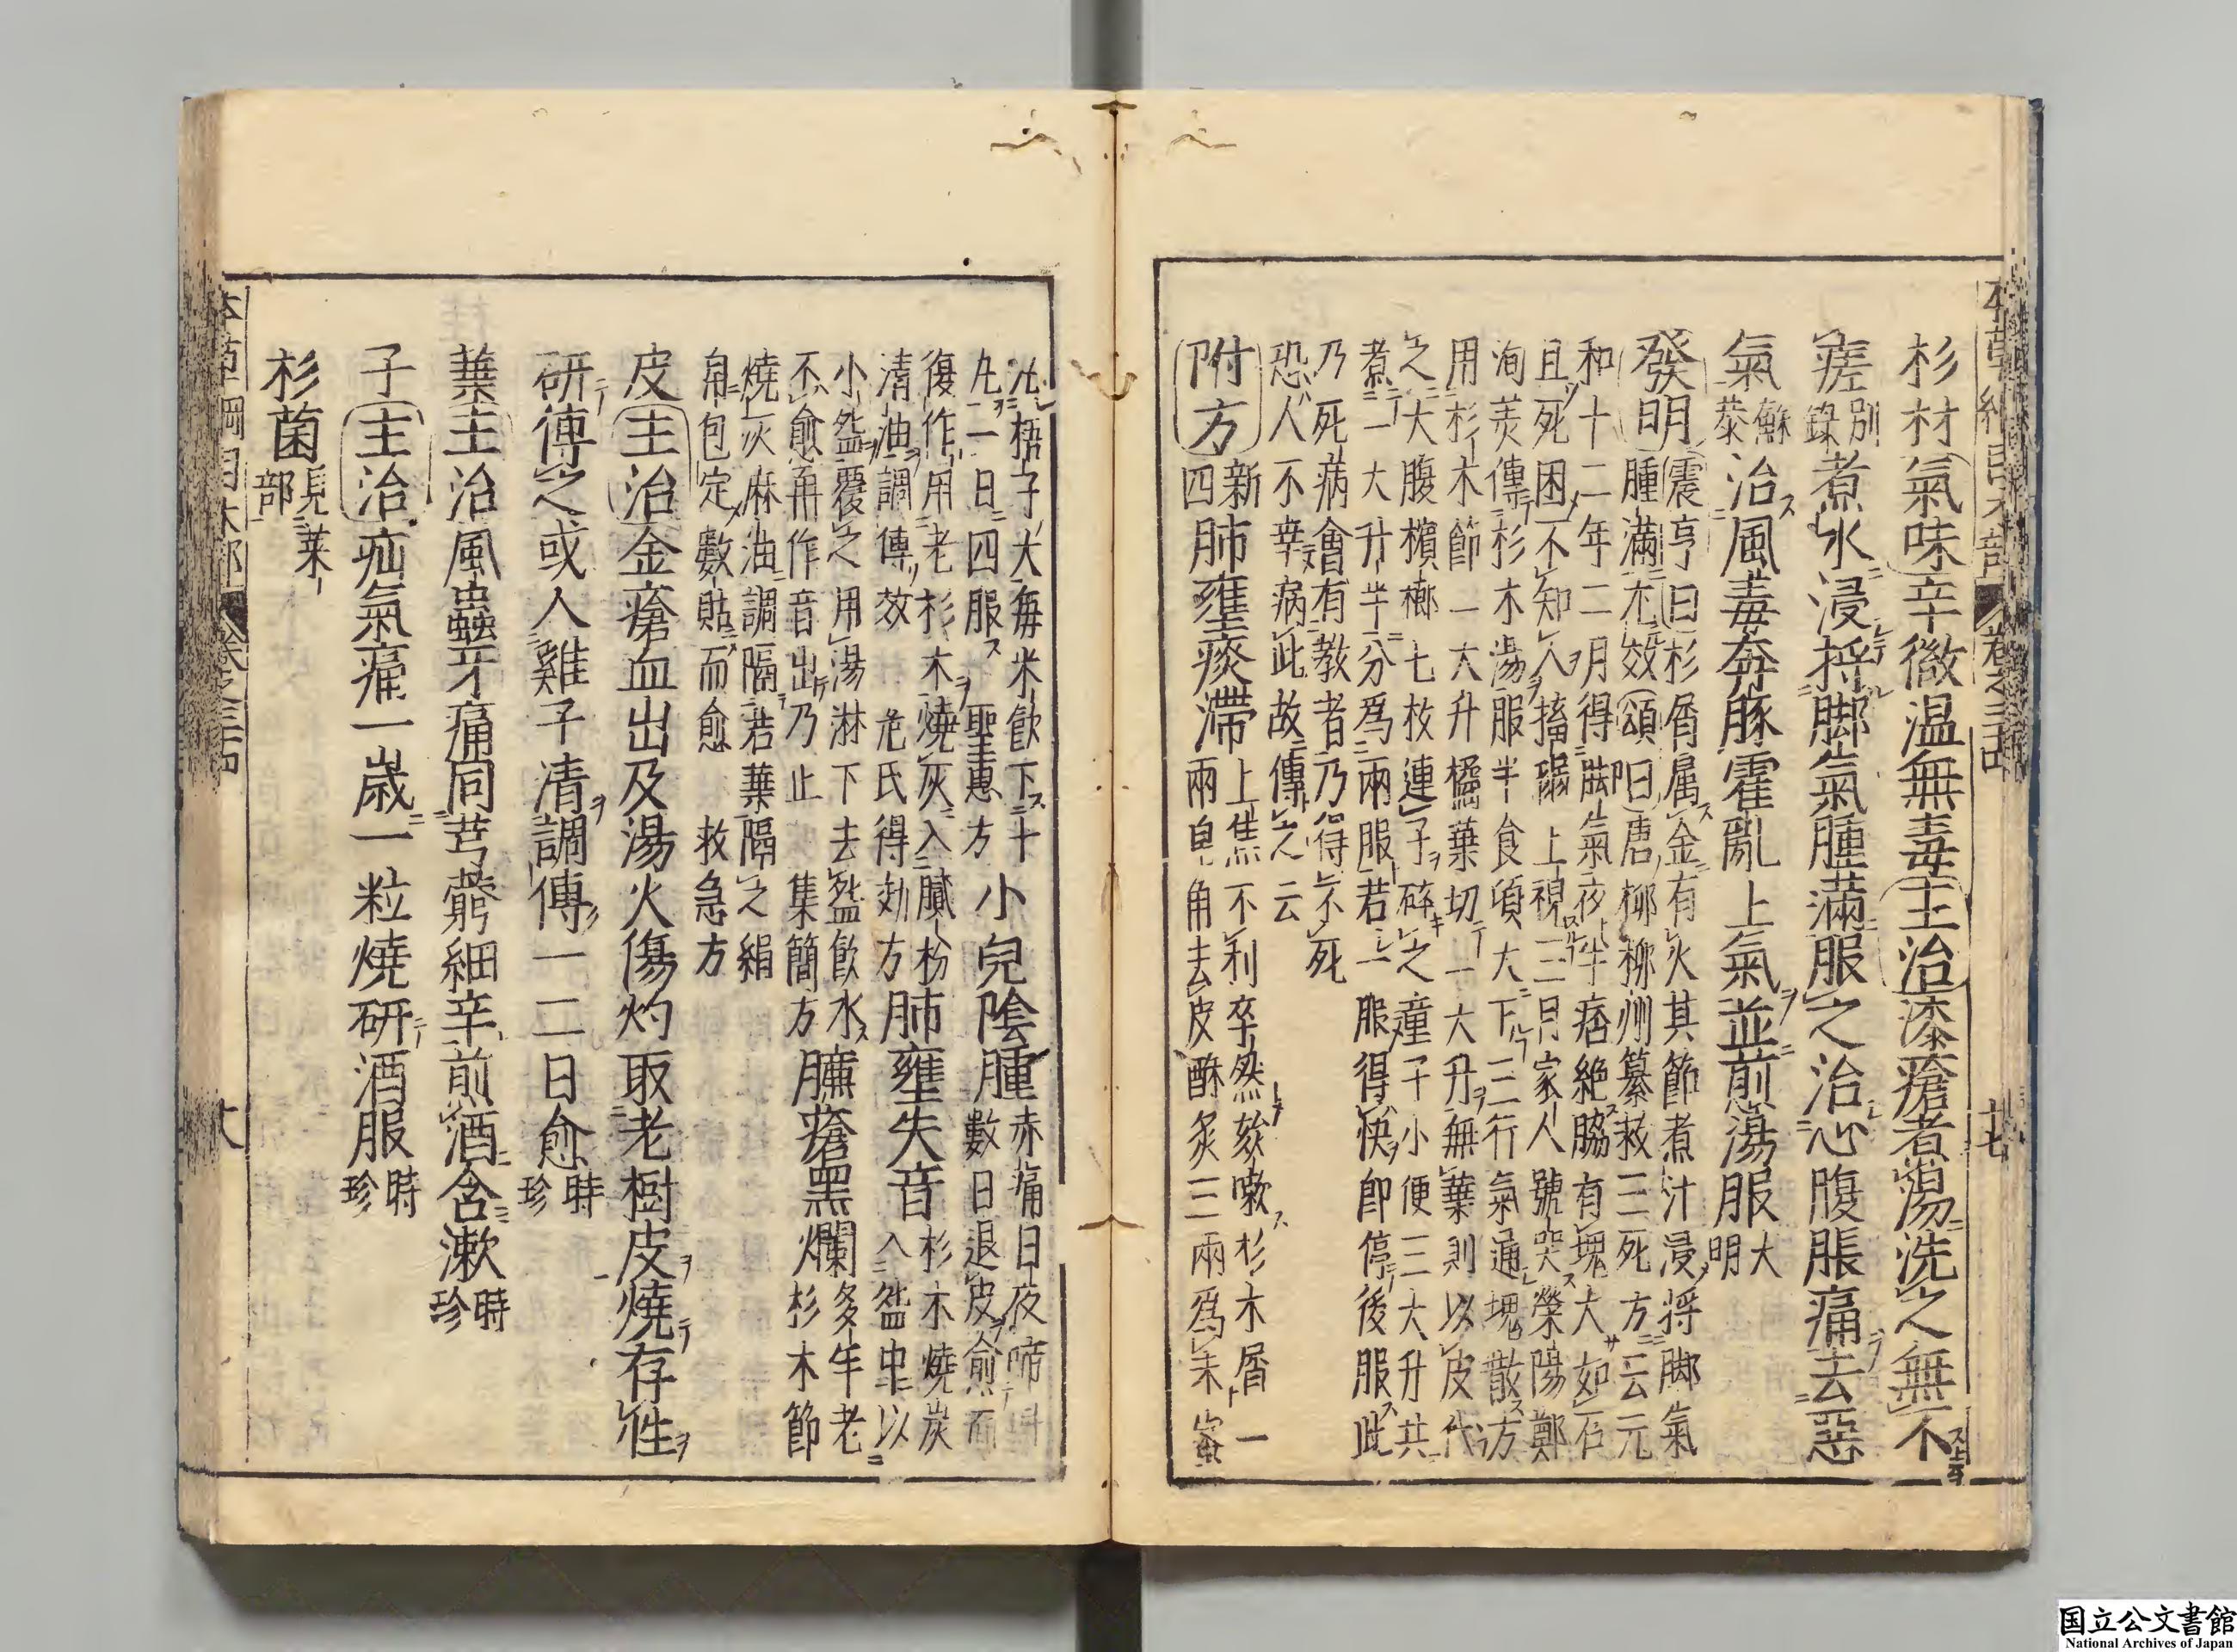 杉材氣味辛微温無毒主治漆瘡煮湯洗之無不
瘥别錄煮水浸捋脚氣腫滿服之治心腹脹痛去惡
氣蘇恭治風毒奔豚霍亂上氣並煎湯服大明
發明震亨曰杉屑属金有火其節煮汁浸捋脚氣
腫滿尤效頌曰唐柳柳州纂救三死方云元
和十二年二月得脚氣夜半痞絶脇有塊大如石
且死困不知人搐搦上視三日家人號哭榮陽鄭
洵美傳杉木湯服半食頃大下三行氣通塊散方
用杉木節一大升橘葉切一大升無葉則以皮代
之大腹檳榔七枚連子碎之童子小便三大升共
煮一大升半分爲兩服若一服得快即停後服此
乃死病會有教者乃得不死
恐人不幸病此故傳之云
附方新四肺壅痰滯上焦不利卒然欬嗽杉木屑一
兩皂角去皮酥炙三兩爲末蜜
丸梧子大每米飲下十
丸一日四服聖惠方小兒陰腫赤痛日夜啼叫
數日退皮愈而
復作用老杉木燒灰入膩粉
清油調傅效危氏得効方肺壅失音杉木燒炭
入盌中以
小盌覆之用湯淋下去盌飮水
不愈再作音出乃止集簡方臁瘡黑爛多年老
杉木節
燒灰麻油調隔箬葉隔之絹
帛包定數貼而愈救急方
皮主治金瘡血出及湯火傷灼取老樹皮燒存性
研傅之或入雞子清調傅一二日愈時珍
葉主治風蟲牙痛同芎藭細辛煎酒含漱時珍
子主治疝氣痛一歲一粒燒研酒服時珍
杉菌見菜部
国立公文書館
National Archives of Japan